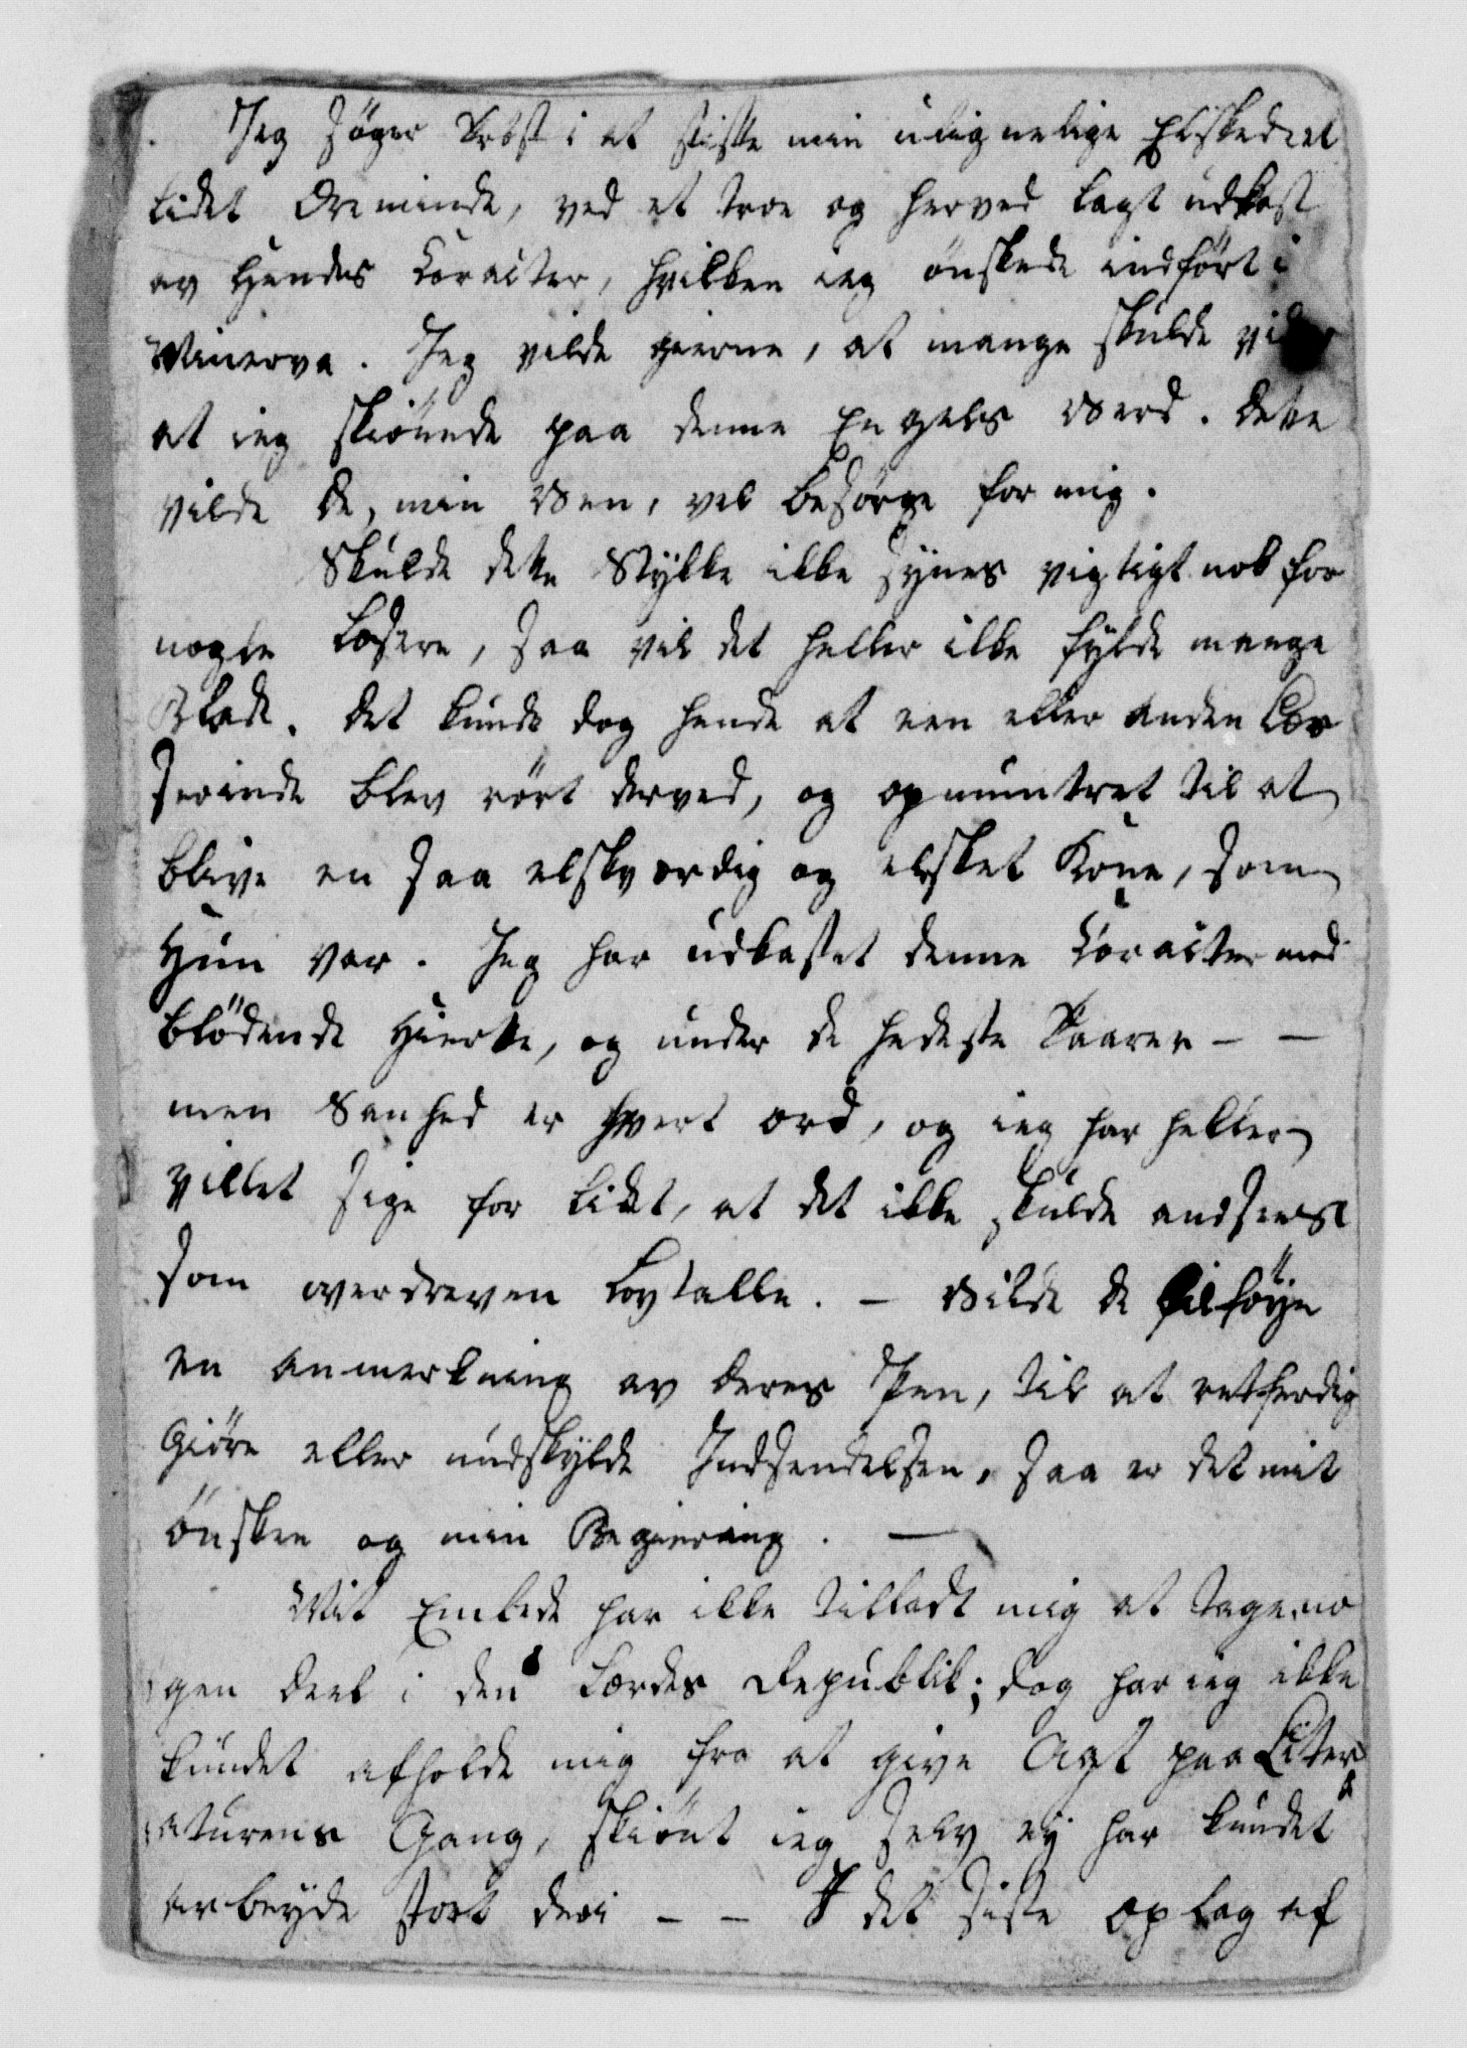 Jeg søger Trøst i at stifte min ulignelige Elskede et
lidet Æreminde, ved et troe og herved lagt udkast
av Hendes Caracter, hvilken ieg ønskede indført i
Minerva. Jeg vilde gierne, at mange skulde vide
at ieg skiønnede paa denne Engels Værd. Dette
vilde De, min Ven, vel besørge for mig.
Skulde dette Stykke ikke synes vigtigt nok for
nogle Læsere, saa vil det heller ikke fylde mange
Blade. Det kunde dog hende at een eller anden Læ
serinde blev rørt derved, og opmuntret til at
blive en saa elskværdig og elsket Kone, som
Hun var. Jeg har udkastet denne Caracter med
blødende Hierte, og under de hedeste Taarer – –
men Sanhed er hvert ord, og ieg har heller
villet sige for lidet, at det ikke skulde andsees
som overdreven Lovtalle. – Vilde De tilføye
en Anmerkning av Deres Pen, til at retferdig
giøre eller undskylde Indsendelsen, saa er det mit
ønske og min Begiering. —
Mit Embede har ikke tilladt mig at tage no
gen Deel i den Lærdes Republik; dog har ieg ikke
kundet afholde mig fra at give Agt paa Liter
aturens Gang, skiønt ieg selv ey har kundet
arbeyde stort deri – – I det siste oplag af